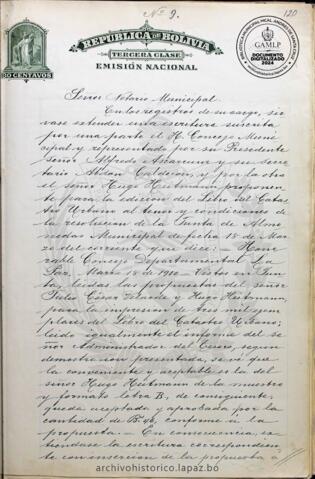 Nº 9.
120
REPUBLICA DE BOLIVIA
TERCERA CLASE
EMISIÓN NACIONAL
50 CENTAVOS
GAMLP
DOCUMENTO
DIGITALIZADO
2024
Señor Notario Municipal.
En los registros de su cargo, sir-
vase extender una escritura suscrita
por una parte el H. Concejo Muni-
cipal y representado por su Presidente
señor Alfredo Ascarrunz y su secre-
tario Abdón Calderón, y por la otra
el señor Hugo Heitmann proponen-
te para la edición del Libro del Catas-
tro Urbano al tenor y condiciones de
la resolución de la Junta de Almo-
nedas Municipal de fecha 18 de Mar-
zo del corriente que dice: Hono-
rable Concejo Departamental. La
Paz, Marzo 18 de 1910. Vistos en Jun-
ta, leidas las propuestas del señor
Julio César Velarde y Hugo Heitmann,
para la impresión de tres mil ejem-
plares del Libro del Catastro Urbano;
leido igualmente el informe del se-
ñor Administrador del Censo, según
demostración presentada, se vé que
la conveniente y aceptable es la del
señor Hugo Heitmann de la muestra
y formato letra B, de consiguiente,
queda aceptada y aprobada por la
cantidad de conforme a la
propuesta. En consecuencia, es-
tiéndase la escritura correspondien-
te con inserción de la propuesta a
archivohistorico.lapaz.bo